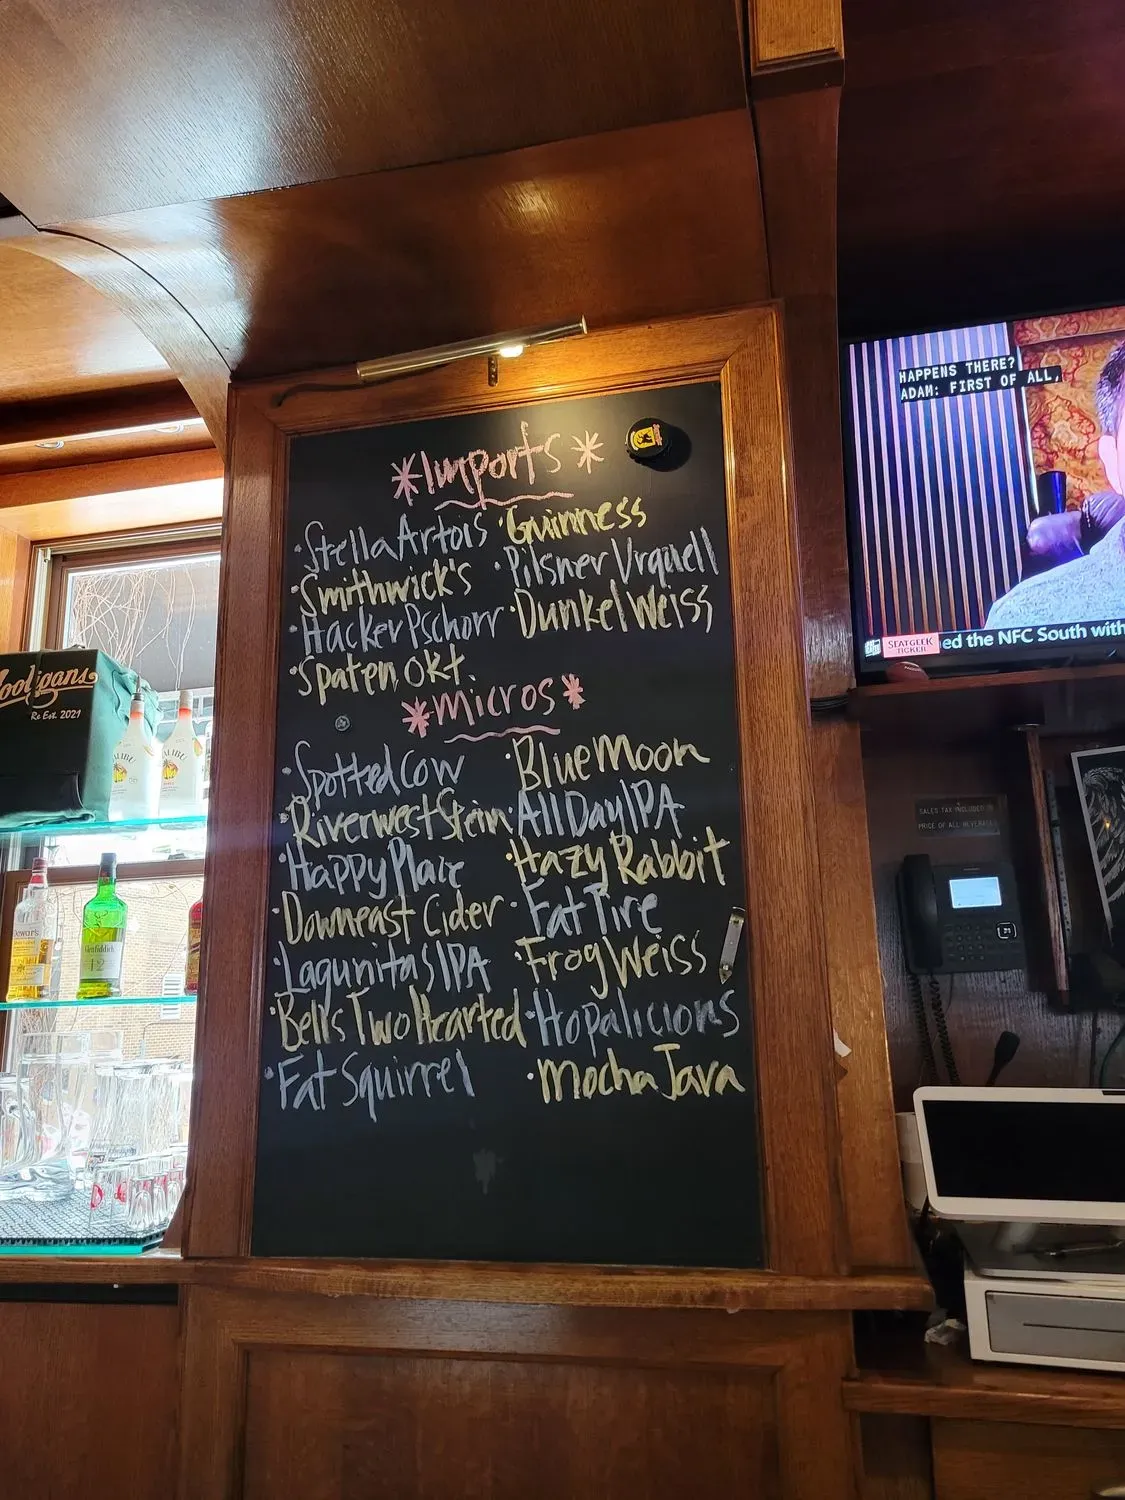 *Imports*
·Stella Artois ·Guinness
·Smithwick's ·Pilsner Urquell
·Hacker Pschorr ·Dunkel Weiss
·Spaten Okt.
*Micros*
·Spotted Cow ·Blue Moon
·Riverwest Stein ·All Day IPA
·Happy Place ·Hazy Rabbit
·Downeast Cider ·Fat Tire
·Lagunitas IPA ·Frog Weiss
·Bell's Two Hearted ·Hopalicious
·Fat Squirrel ·Mocha Java
HAPPENS THERE?
ADAM: FIRST OF ALL,
SEATGEEK
TICKER
ed the NFC South with
ooligans
Re Est. 2021
MALIBU
Dewar's
Glenfiddich
12
SALES TAX INCLUDED IN
PRICE OF ALL BEVERAGES